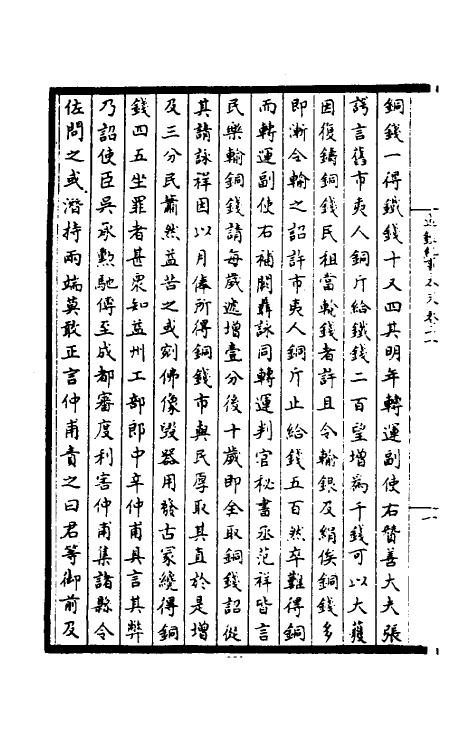 銅錢一得鐵錢十又四其明年轉運副使右贊善大夫張
諤言舊市夷人銅斤給鐵錢二百望增為千錢可以大獲
因復鑄銅錢民租當輸錢者許且令輸銀及絹俟銅錢多
即漸令輸之詔許市夷人銅斤止給錢五百然卒難得銅
而轉運副使右補闕聶詠同轉運判官秘書丞范祥皆言
民樂輸銅錢請每歲遞增壹分後十歲即全取銅錢詔從
其請詠祥因以月俸所得銅錢市與民厚取其直於是增
及三分民蕭然益苦之或剜佛像毀器用發古冢纔得銅
錢四五坐罪者甚眾知益州工部郎中辛仲甫具言其弊
乃詔使臣吳承勳馳傳至成都審度利害仲甫集諸縣令
佐問之或潛持兩端莫敢正言仲甫責之曰君等御前及